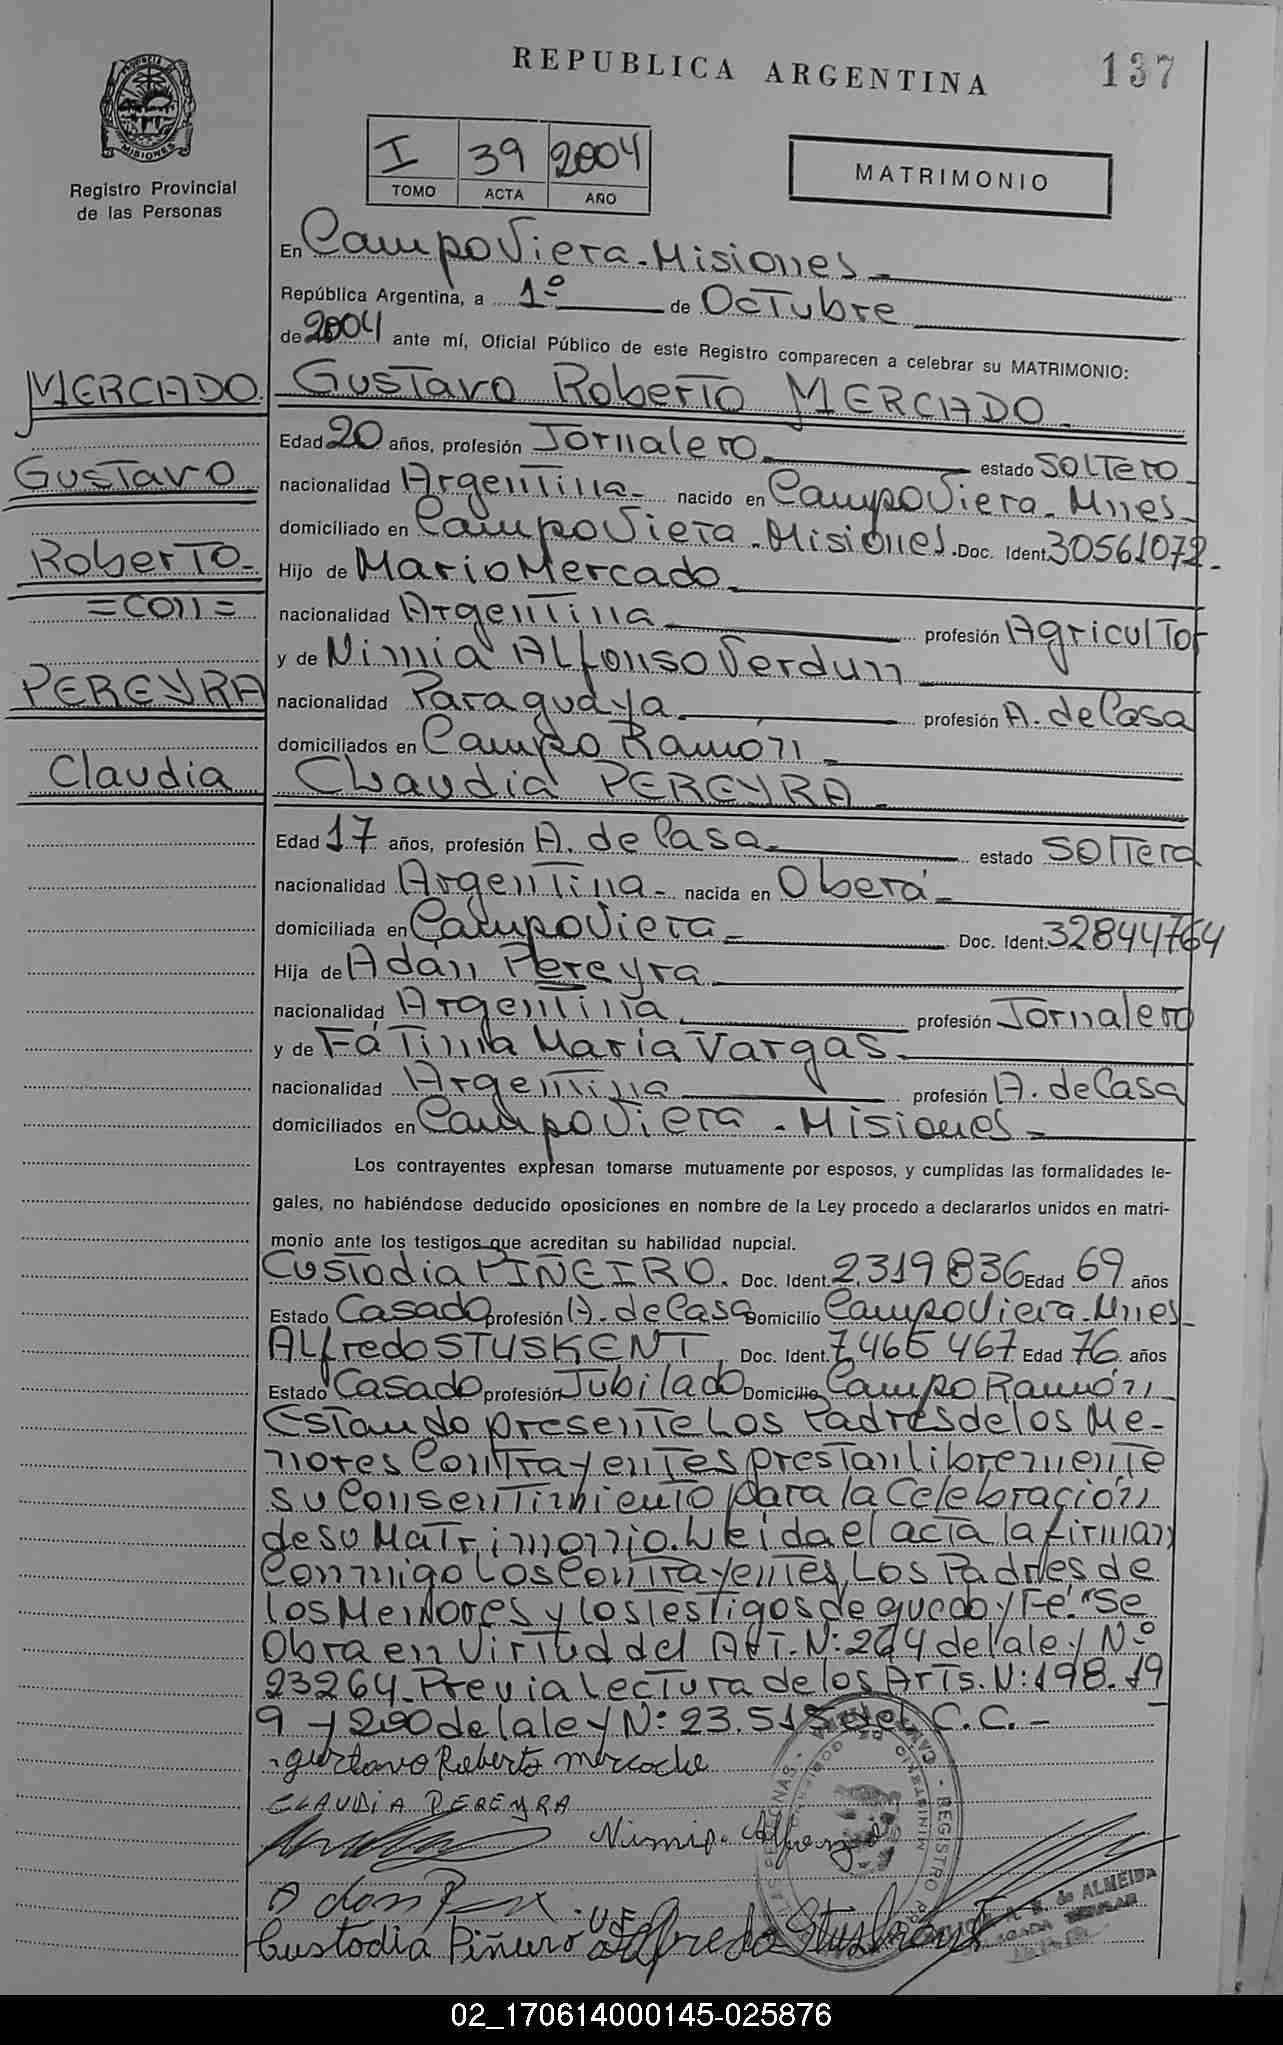 REPUBLICA ARGENTINA
137
PROVINCIA DE MISIONES
Registro Provincial
de las Personas
I 39 2004
TOMO ACTA AÑO
MATRIMONIO
En Campo Viera - Misiones -
República Argentina, a 1º de Octubre
de 2004 ante mí, Oficial Público de este Registro comparecen a celebrar su MATRIMONIO:
MERCADO
Gustavo
Roberto -
= con =
PEREYRA
Claudia
Gustavo Roberto MERCADO -
Edad 20 años, profesión Jornalero estado SOLTERO -
nacionalidad Argentina - nacido en Campo Viera - Mnes -
domiciliado en Campo Viera - Misiones. Doc. Ident. 30561072 -
Hijo de Mario Mercado -
nacionalidad Argentina profesión Agricultor
y de Nimia Alfonso Verdun
nacionalidad Paraguaya profesión A. de Casa
domiciliados en Campo Ramón -
Claudia PEREYRA -
Edad 17 años, profesión A. de Casa - estado SOLTERA
nacionalidad Argentina - nacida en Oberá -
domiciliada en Campo Viera - Doc. Ident. 32844764
Hija de Adán Pereyra
nacionalidad Argentina profesión Jornalero
y de Fátima María Vargas -
nacionalidad Argentina profesión A. de Casa
domiciliados en Campo Viera - Misiones -
Los contrayentes expresan tomarse mutuamente por esposos, y cumplidas las formalidades le-
gales, no habiéndose deducido oposiciones en nombre de la Ley procedo a declararlos unidos en matri-
monio ante los testigos que acreditan su habilidad nupcial.
Custodia PIÑEIRO. Doc. Ident. 2.319836 Edad 69 años
Estado Casado profesión A. de Casa Domicilio Campo Viera - Mnes -
Alfredo STUSKENT Doc. Ident. 7465467 Edad 76 años
Estado Casado profesión Jubilado Domicilio Campo Ramón
Estando presente Los Padres de los Me-
nores Contrayentes prestan libremente
su Consentimiento para la Celebración
de su Matrimonio. Leida el acta la firman
Conmigo Los Contrayentes, Los Padres de
los Menores y los Testigos de que doy Fé. "Se
Obra en Virtud del Art. N: 264 de la ley Nº
23264 - Previa Lectura de los Arts. N: 198. 19
9 y 200 de la ley N: 23.515 del C.C. -
Gustavo Roberto Mercado
CLAUDIA PEREYRA
Nimia Alfonso
Adan
Custodia Piñeiro Alfredo Stuskent
de ALMEIDA
02_170614000145-025876